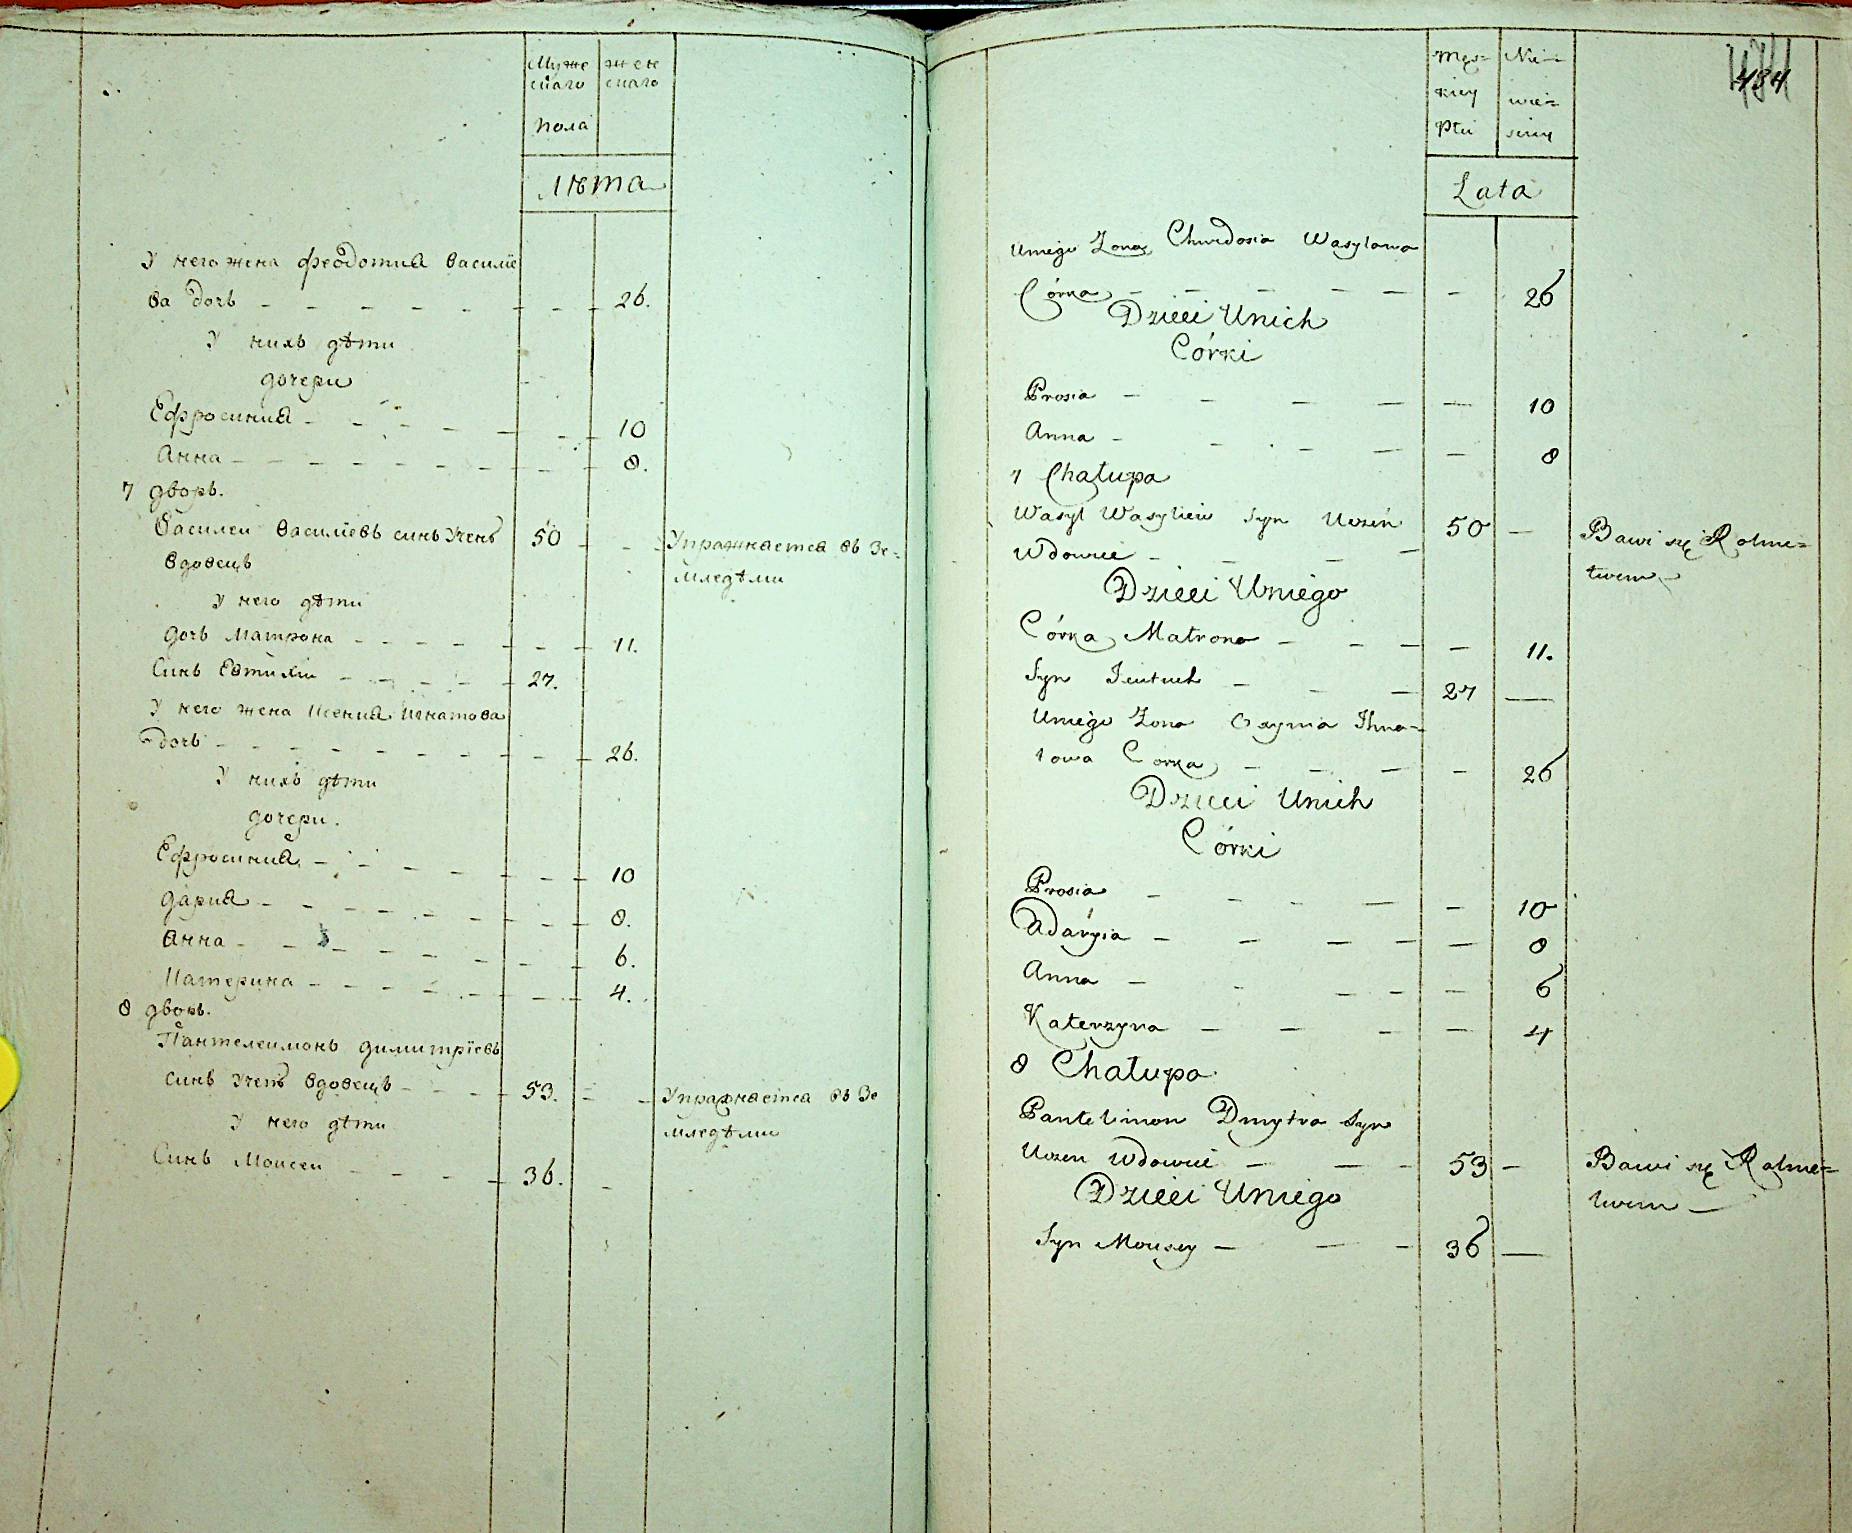 Муже
скаго
пола
жен
скаго
лѣта
У него жена Феодотиа Василіе
ва дочь 26.
У нихъ дѣти
дочери
Ефросиниа 10
Анна 8.
7 дворъ.
Василей Василіевъ синъ Ученъ 50 Упражнается въ Зе=
вдовецъ мледѣли
У него дѣти
дочь Матрона 11.
Синъ Евтихіи 27.
У него жена Ксениа Игнатова
дочь 26.
У нихъ дѣти
дочери.
Ефросиниа 10
Дариа 8.
Анна 6.
Катерина 4.
8 дворъ.
Пантелеимонъ Димитріевъ
синъ Ученъ вдовецъ 53. Упражнается въ Зе
У него дѣти мледѣли
Синъ Моисеи 36.
Męs=
kiey
Płci
Nie=
wie=
Lata
484
Uniego Zona Chwedosia Wasylowa
Córka 26
Dzieci Unich
Córki
Prosia 10
Anna 8
7 Chałupa
Wasyl Wasyliew Syn Uczeń 50 Bawi się Rolnic=
Wdowiec twem
Dzieci Uniego
Córka Matrona 11.
Syn Jeutuch 27
Uniego Zona Oxynia Ihna=
towa Corka 26
Dzieci Unich
Córki
Prosia 10
Adaryia 8
Anna 6
Katerzyna 4
8 Chałupa
Pantelimon Dmytra Syn
Uczen Wdowiec 53 Bawi się Rolnic=
Dzieci Uniego twem
Syn Mousey 36